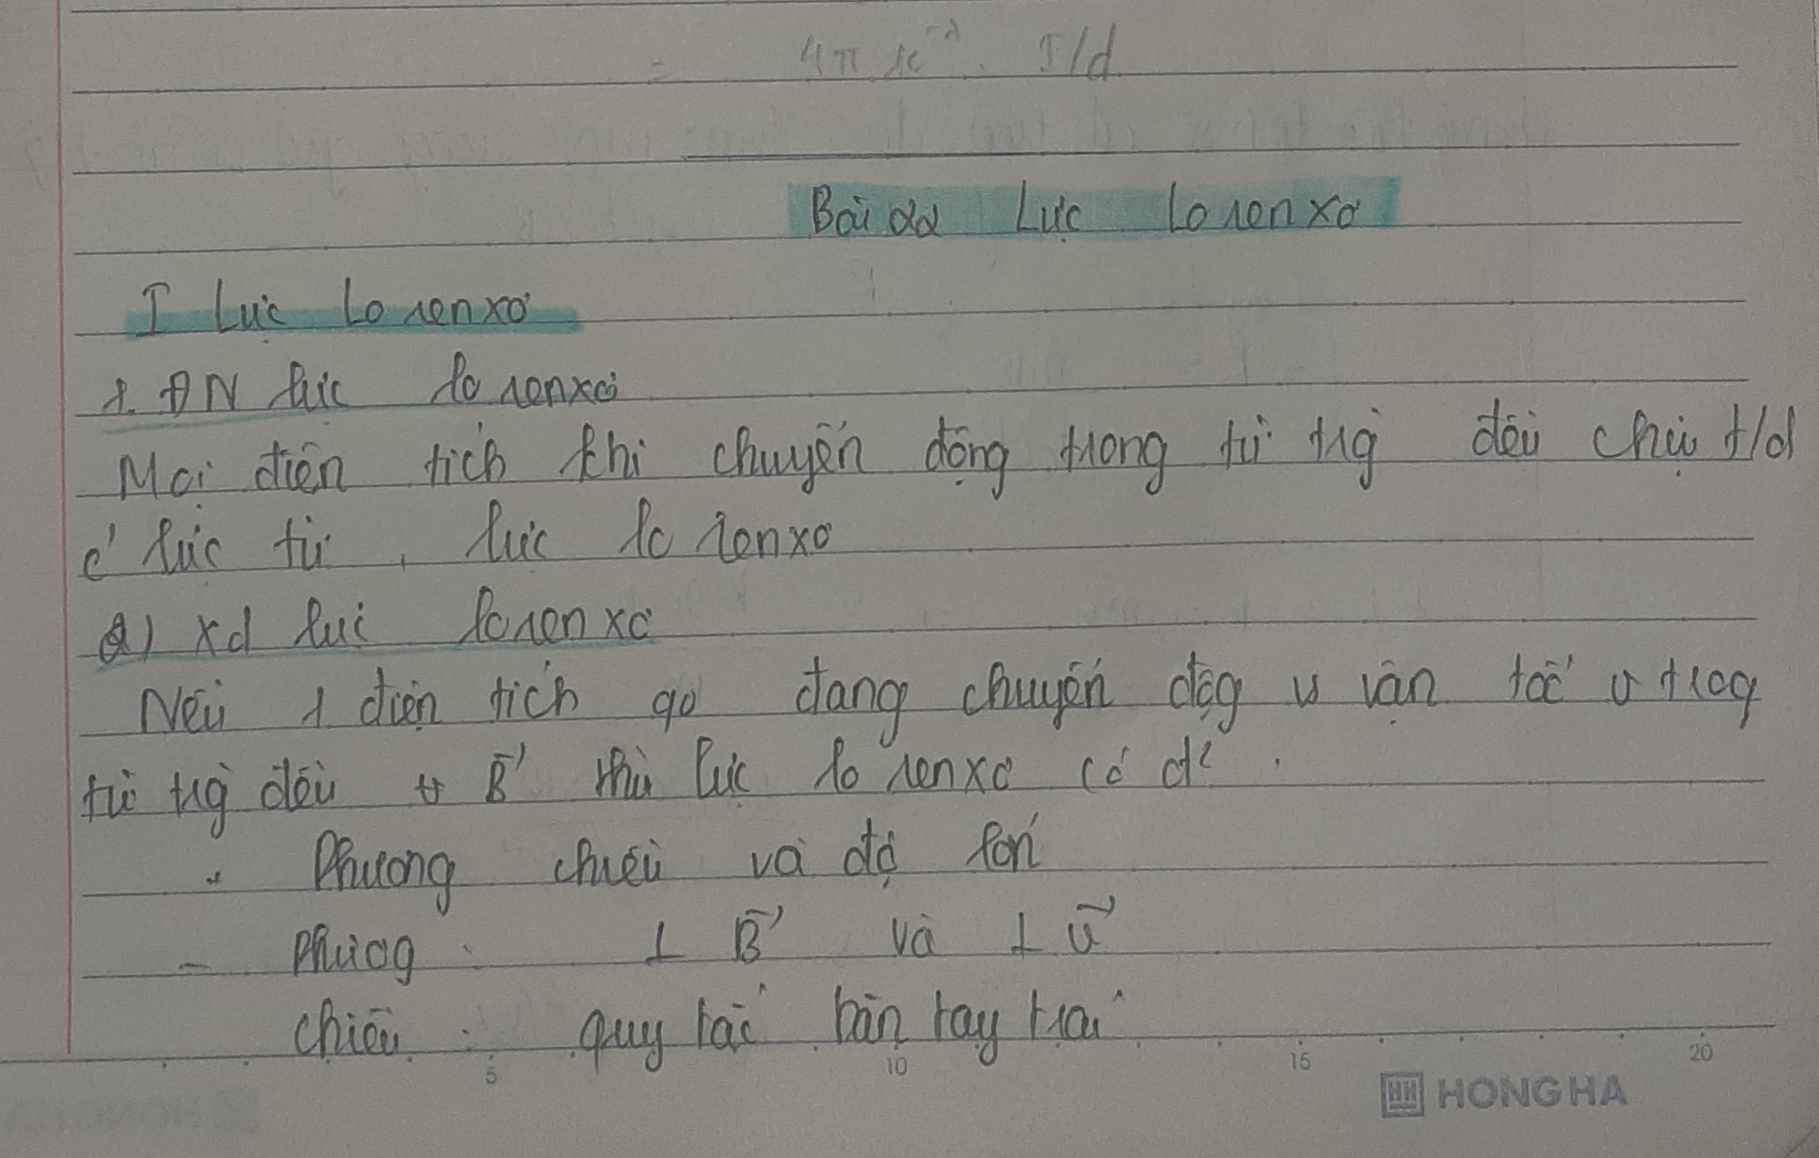 = 4π 10⁻⁷. I/d
Bài 22 Lực Lo renxơ
I Lực Lo renxơ
1. ĐN lực lo renxơ
Mọi điện tích khi chuyển động trong từ trg đều chịu t/d
c' lực từ, lực lo renxơ
2) Xđ lực lorenxơ
Nếu 1 điện tích q0 đang chuyển độg v vận tốc v trog
từ trg đều B⃗ thì lực lo renxơ có đ² :
Phương chiều và độ lớn
- Phươg : ⊥ B⃗ và ⊥ v⃗
Chiều : quy tắc bàn tay trái
5 10 15 20
HONG HA